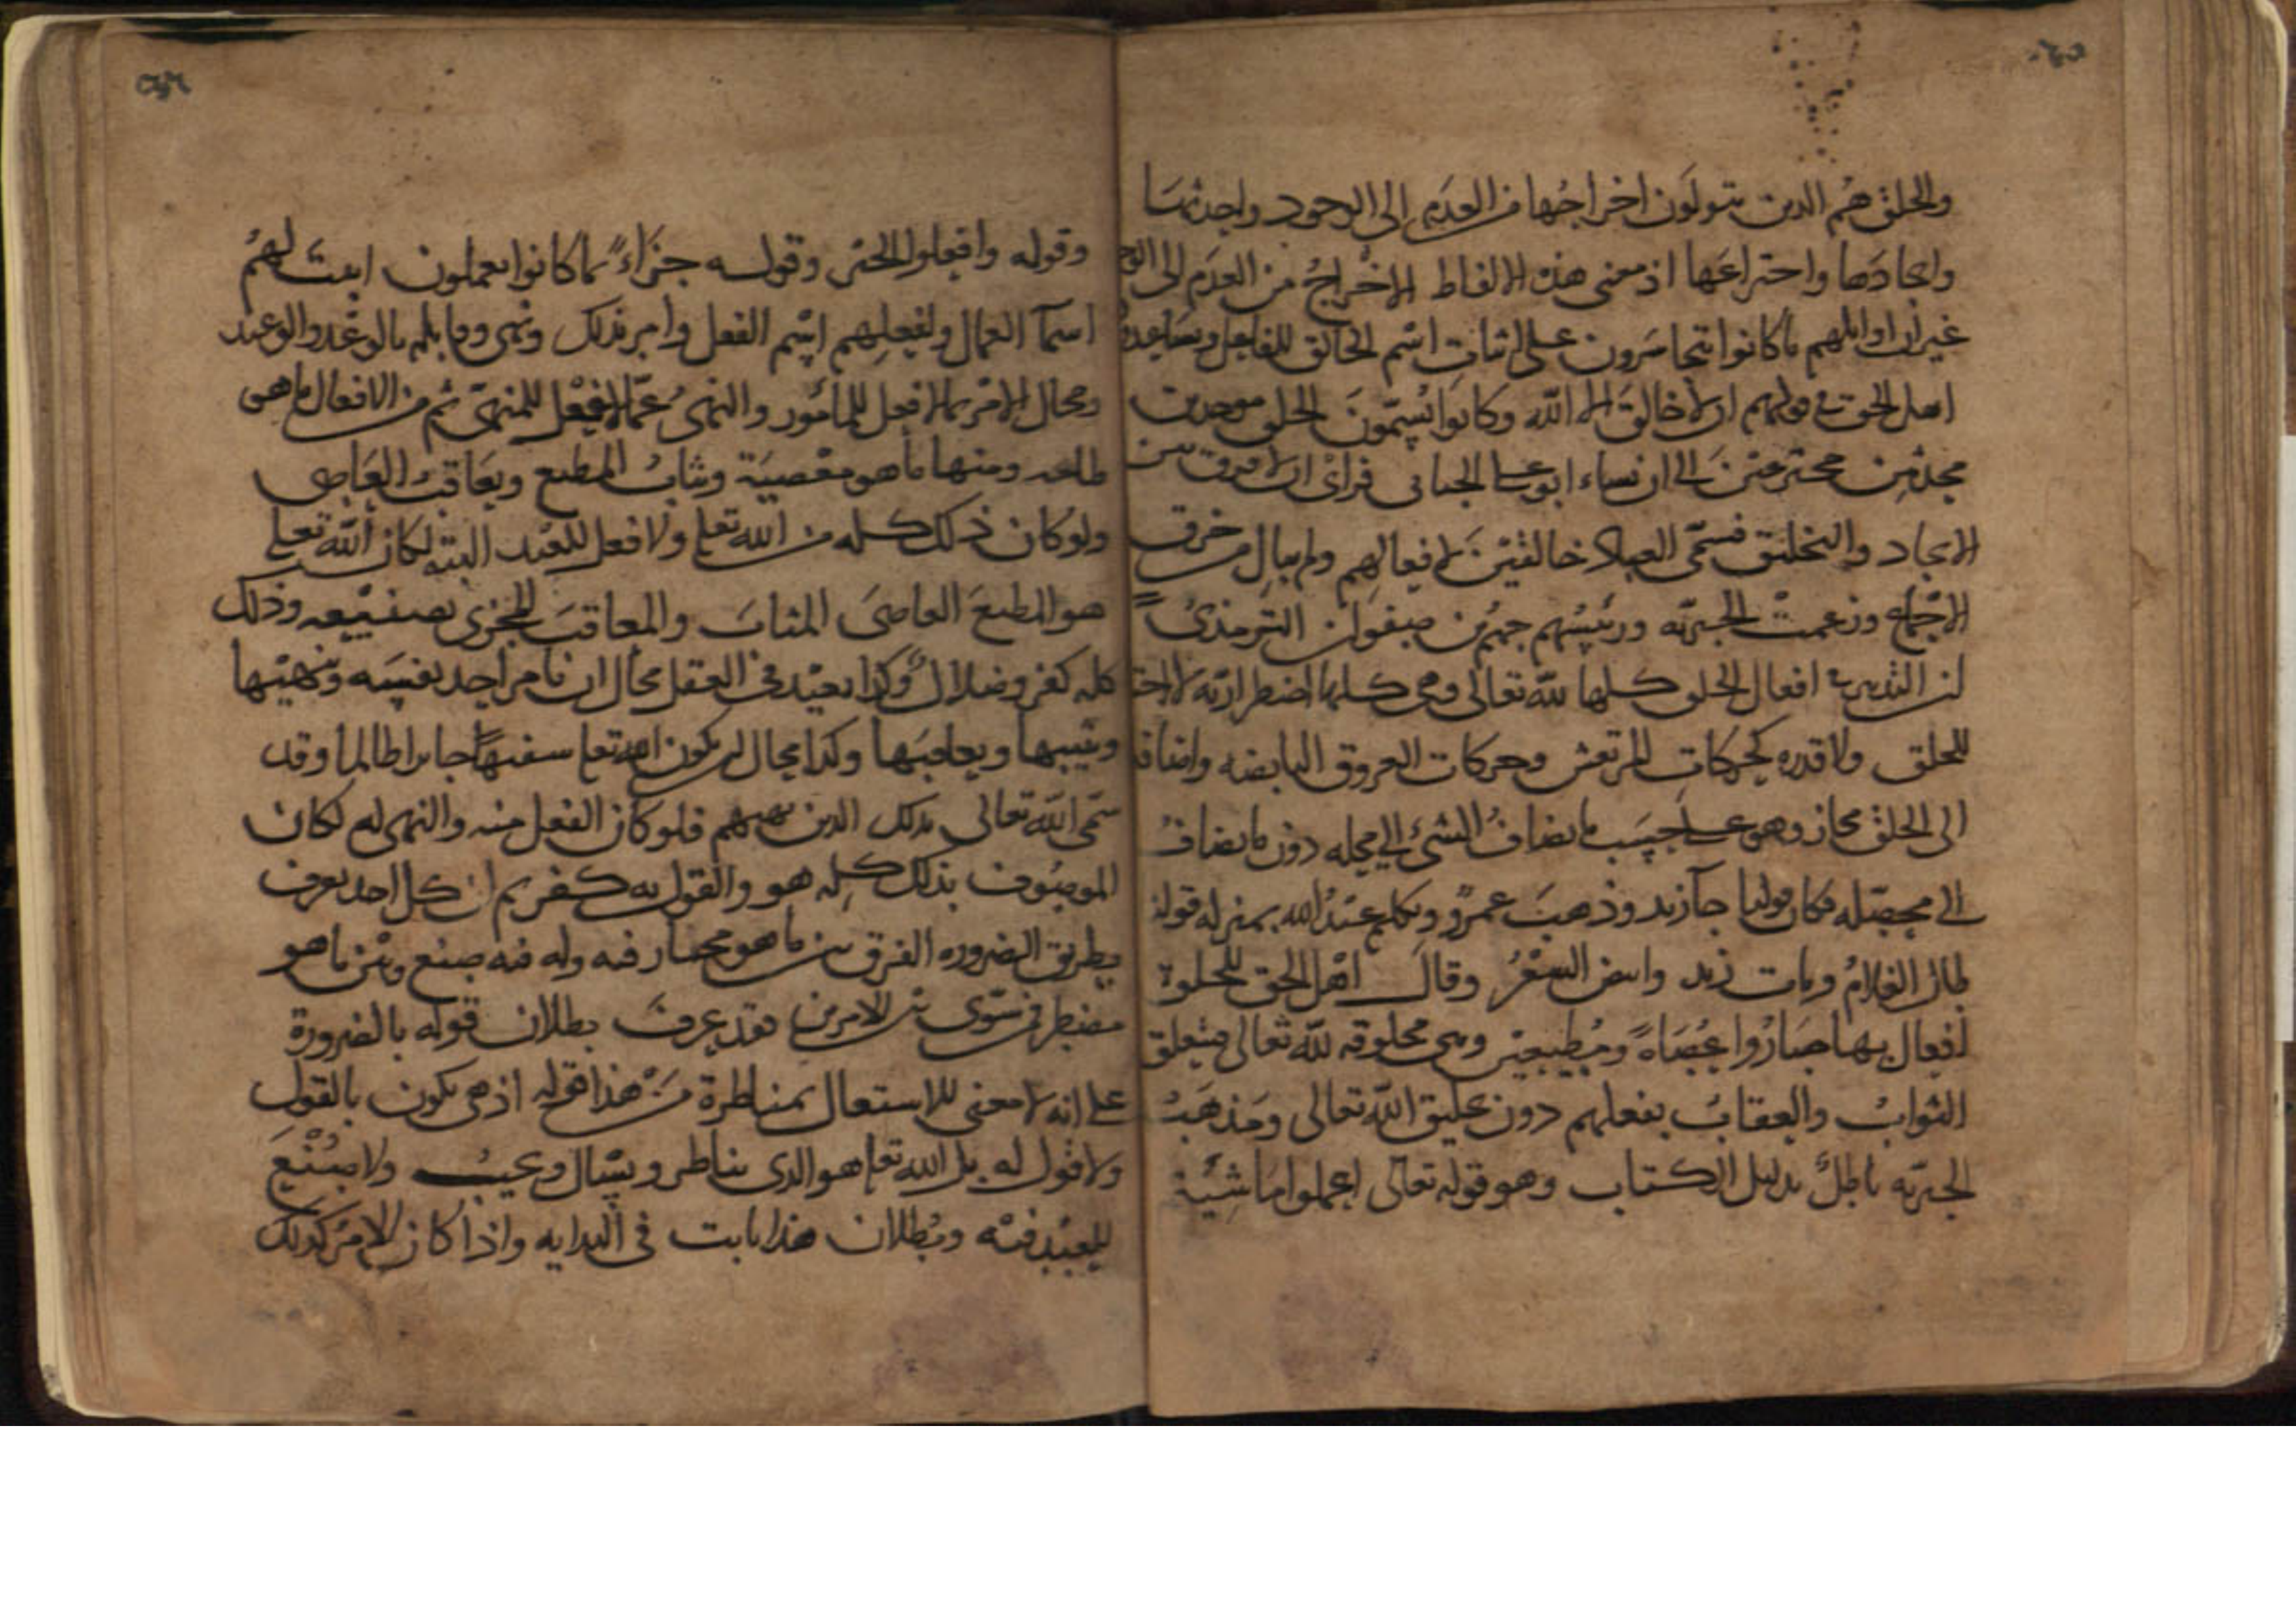 والخلق هم الذين يتولون اخراجها من العدم الى الوجود واحداثها
وايجادها واختراعها اذ معنى هذه الالفاظ الاخراج من العدم الى الوجود
غير ان اوائلهم ما كانوا يتجاسرون على اثبات اسم الخالق للفاعل
اهل الحق في قولهم ان لا خالق الا الله وكانوا يسمون الخلق موجدين
محدثين مخترعين الى ان نشاء ابو علي الجبائي فرأى ان لا فرق بين
الايجاد والتخليق فسمى العباد خالقين لافعالهم ولم يبال من خرق
الاجماع وزعمت الجبرية ورئيسهم جهم بن صفوان الترمذي
ان التدبير في افعال الخلق كلها لله تعالى وهي كلها اضطرارية لا اختيار
للخلق ولا قدرة كحركات المرتعش وحركات العروق النابضة واضافتها
الى الخلق مجاز وهو على حسب ما يضاف الشئ الى محله دون ما يضاف
الى محصله فكان قولنا جآ زيد وذهب عمرو وتكلم عبد الله بمنزلة قولنا
طال الغلام ومات زيد وابيض الشعر وقال اهل الحق للخلق
افعال بها صاروا عصاة ومطيعين وهي مخلوقة لله تعالى فيتعلق
الثواب والعقاب بفعلهم دون تخليق الله تعالى ومذهب
الجبرية باطل بدليل الكتاب وهو قوله تعالى اعملوا ما شئتم
وقوله وافعلوا الخير وقوله جزاء بما كانوا يعملون اثبت لهم
اسم العمال ولفعلهم اسم الفعل وامر بذلك ونهى وقابلهم بالوعد والوعيد
ومحال الامر بما لا فعل للمأمور والنهى عما لا فعل للمنهى ثم من الافعال ما هي
طاعة ومنها ما هو معصية ويثاب المطيع ويعاقب العاصى
ولو كان ذلك كله من الله تعلى ولا فعل للعبد البتة لكان الله تعلى
هو المطيع العاصى المثاب والمعاقب المجزى بصنيعه وذلك
كله كفر وضلال وكذا بعيد في العقل محال ان يأمر احد نفسه وينهيها
ويثيبها ويعاقبها وكذا محال ان يكون الله تعلى سفيها جائرا ظالما وقد
سمى الله تعالى بذلك الذين نهيهم فلو كان الفعل منه والنهى له لكان
الموصوف بذلك كله هو والقول به كفر ثم ان كل احد يعرف
بطريق الضرورة الفرق بين ما هو مختار فيه وله فيه صنع وبين ما هو
مضطر فمن سوى بين الامرين فقد عرف بطلان قوله بالضرورة
على انه لا معنى للاستعال بمناظرة من هذا قوله اذ هي تكون بالقول
ولا قول له بل الله تعلى هو الذى يناظر ويسال ويجيب ولا صنع
للعبد فيه وبطلان هذا ثابت في البداية واذا كان الامر كذلك